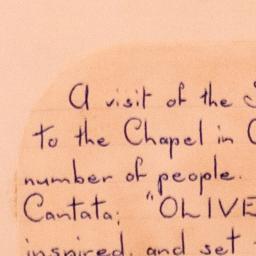 A visit of the
to the Chapel in
number of people.
Cantata; "OLIVE
inspired, and set